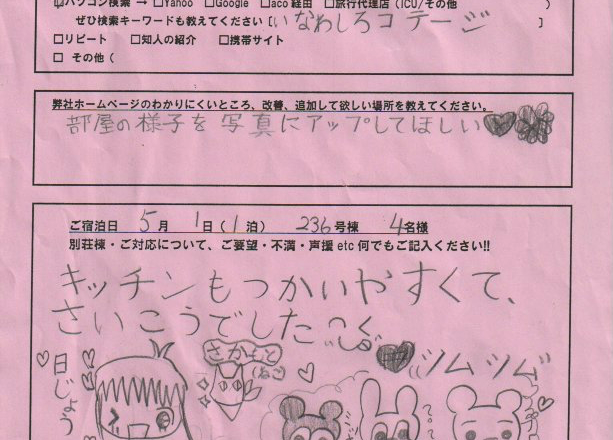 パソコン検索 → □Yahoo □Google □aco 経由 □旅行代理店（ICU/その他　）
ぜひ検索キーワードも教えてください［いなわしろコテージ］
□リピート □知人の紹介 □携帯サイト
□ その他（
弊社ホームページのわかりにくいところ、改善、追加して欲しい場所を教えてください。
部屋の様子を写真にアップしてほしい
ご宿泊日 5月 1日（1泊） 236号棟 4名様
別荘棟・ご対応について、ご要望・不満・声援 etc 何でもご記入ください!!
キッチンもつかいやすくて、
さいこうでした
さかもと
(ねこ
ツムツム
日じょう